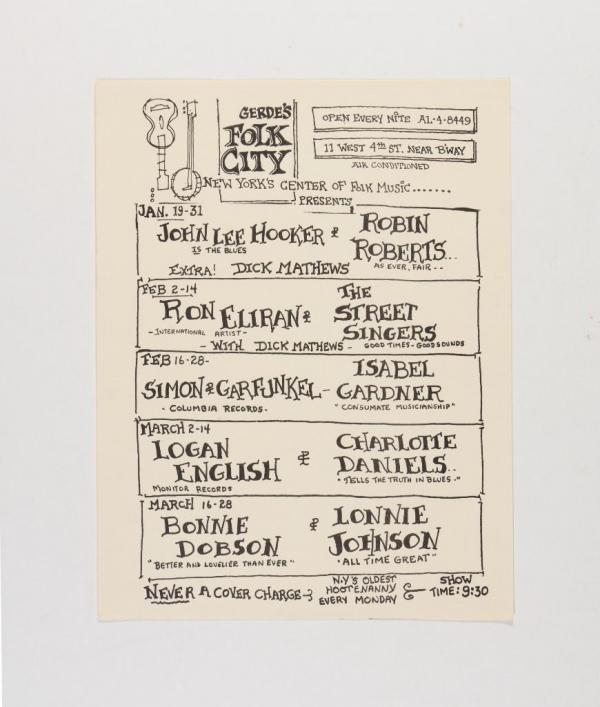 GERDE'S
FOLK
CITY
OPEN EVERY NITE AL·4·8449
11 WEST 4TH ST. NEAR B'WAY
AIR CONDITIONED
NEW YORK'S CENTER OF FOLK MUSIC.......
PRESENTS
JAN. 19-31
JOHN LEE HOOKER &
IS THE BLUES
ROBIN
ROBERTS...
AS EVER, FAIR--
EXTRA! DICK MATHEWS
FEB 2-14
RON ELIRAN &
-INTERNATIONAL ARTIST-
THE
STREET
SINGERS
GOOD TIMES-GOOD SOUNDS
-WITH DICK MATHEWS-
FEB 16-28-
SIMON & GARFUNKEL-
· COLUMBIA RECORDS·
ISABEL
GARDNER
"CONSUMATE MUSICIANSHIP"
MARCH 2-14
LOGAN
ENGLISH &
MONITOR RECORDS
CHARLOTTE
DANIELS..
"TELLS THE TRUTH IN BLUES·"
MARCH 16-28
BONNIE
DOBSON &
"BETTER AND LOVELIER THAN EVER"
LONNIE
JOHNSON
"ALL TIME GREAT"
NEVER A COVER CHARGE-
N.Y'S OLDEST
HOOTENANNY
EVERY MONDAY &
SHOW
TIME: 9:30